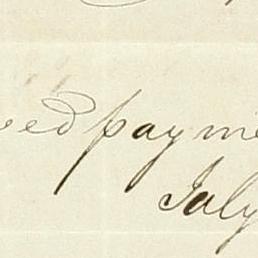 ved payme
July